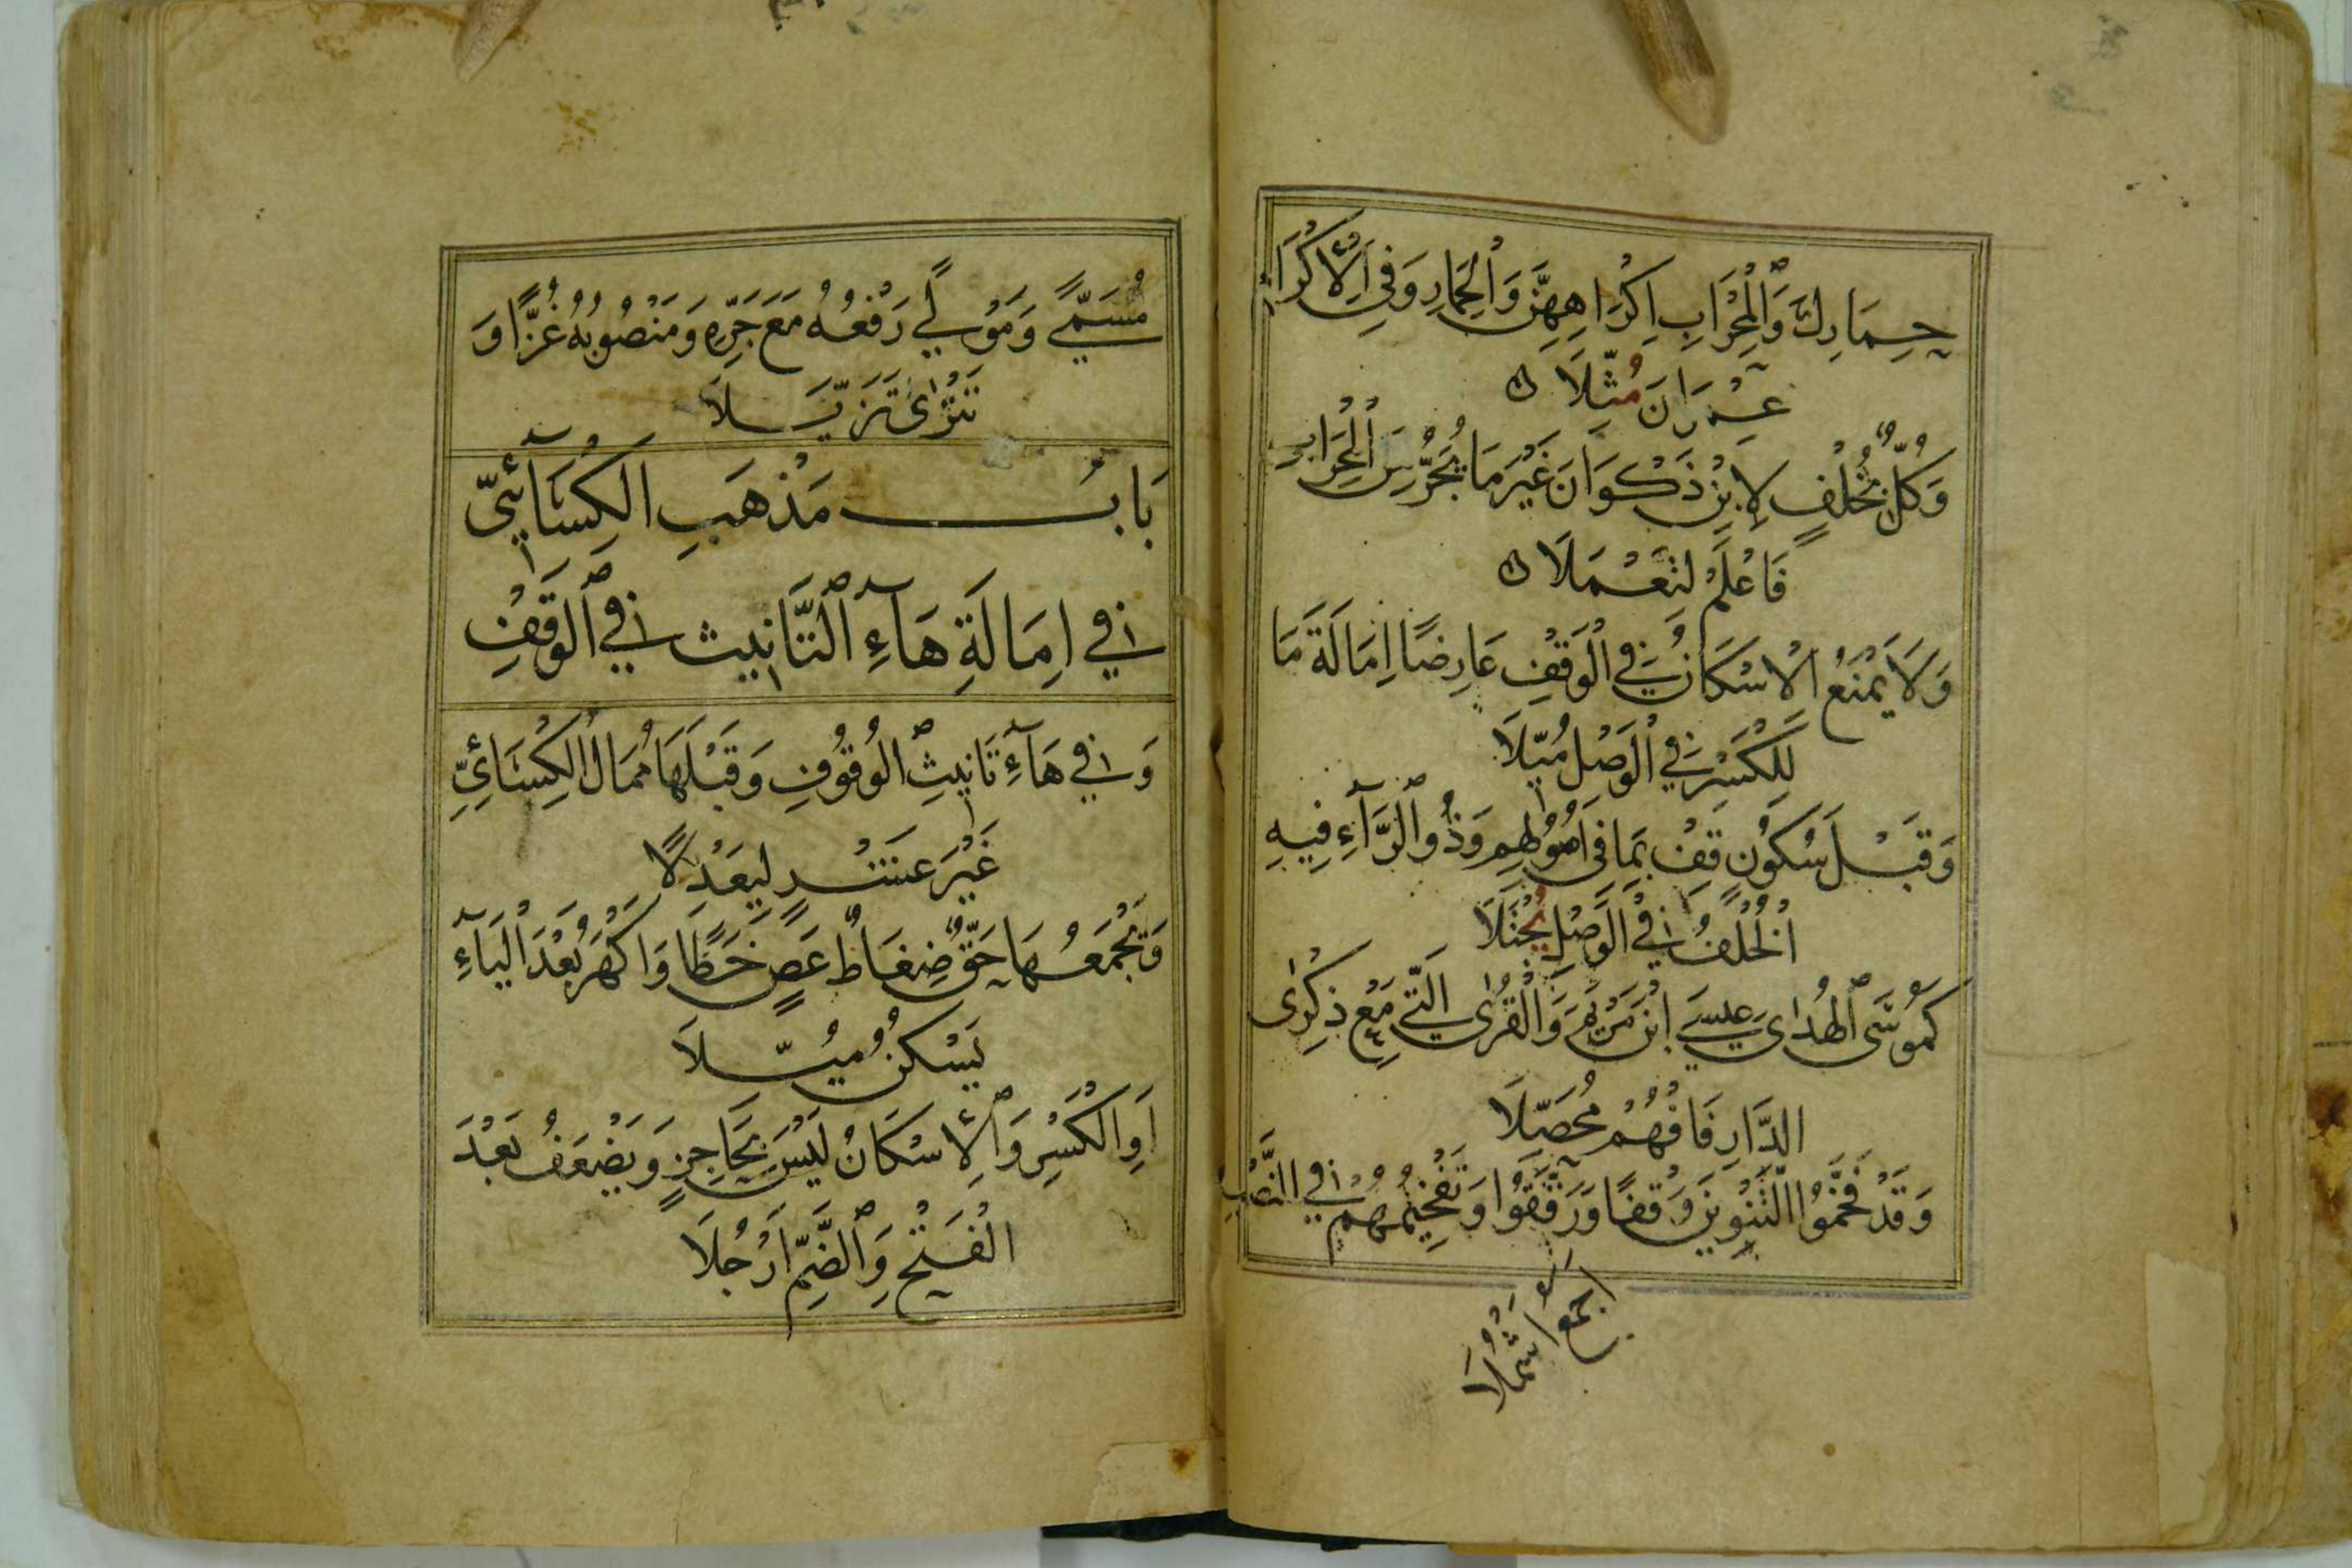 حِمَارِكَ وَالْمِحْرَابِ اِكْرَاهِهِنَّ وَالْحِمَارِ وَفِي الْاِكْرَامِ
عِمْرَانَ مُثِّلَا
وَكُلٌّ بِخُلْفٍ لِابْنِ ذَكْوَانَ غَيْرَ مَا يُجَرُّ مِنَ الْمِحْرَابِ
فَاعْلَمْ لِتَعْمَلَا
وَلَا يَمْنَعُ الْاِسْكَانُ فِي الْوَقْفِ عَارِضًا اِمَالَةَ مَا
لِلْكَسْرِ فِي الْوَصْلِ مُيِّلَا
وَقَبْلَ سُكُونٍ قِفْ بِمَا فِي اُصُولِهِمْ وَذُو الرَّآءِ فِيهِ
الْخُلْفُ فِي الْوَصْلِ يُجْتَلَا
كَمُوسَى الْهُدَاى عِيسَى ابْنِ مَرْيَمَ وَالْقُرَى الَّتِي مَعْ ذِكْرَى
الدَّارِ فَافْهَمْ مُحَصِّلَا
وَقَدْ فَخَّمُوا التَّنْوِينَ وَقْفًا وَرَقَّقُوا وَتَفْخِيمُهُمْ فِي النَّصْبِ
اَجْمَعُ اَشْمُلَا
مُسَمًّى وَمَوْلًى رَفْعُهُ مَعَ جَرِّهِ وَمَنْصُوبُهُ غُزًّا وَ
تَتْرًى تَزَيَّلَا
بَابُ مَذْهَبِ الْكِسَآئِيِّ
فِي اِمَالَةِ هَآءِ التَّانِيثِ فِي الْوَقْفِ
وَفِي هَآءِ تَانِيثِ الْوُقُوفِ وَقَبْلَهَا مُمَالُ الْكِسَائِيِّ
غَيْرَ عَشْرٍ لِيَعْدِلَا
وَيَجْمَعُهَا حَقٌّ ضِغَاطٌ عَصٍ خَظَا وَاَكْهَرُ بَعْدَ الْيَآءِ
يَسْكُنُ مُيِّلَا
اَوِ الْكَسْرِ وَالْاِسْكَانُ لَيْسَ بِحَاجِزٍ وَيَضْعُفُ بَعْدَ
الْفَتْحِ وَالضَّمِّ اَرْجُلَا